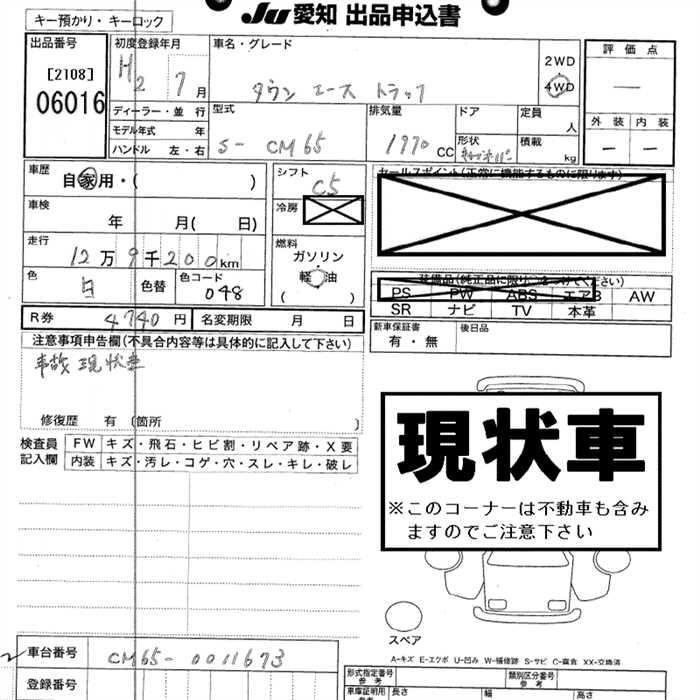 キー預かり・キーロック
JU 愛知 出品申込書
出品番号
[2108]
06016
初度登録年月
H2 7月
車名・グレード
タウンエース トラック
2WD
4WD
評価点
—
外装 内装
— —
ディーラー・並行
モデル年式 年
ハンドル 左・右
型式
S- CM65
排気量
1970 CC
ドア
形状
定員
人
積載
kg
車歴
自家用・( )
シフト
C5
冷房
セールスポイント(正常に機能するものに限ります)
車検
年 月(日)
走行
12万9千200km
燃料
ガソリン
軽油
( )
色
白
色替
色コード
048
装備品(純正品に限り○をつけてください)
PS PW ABS エアB AW
SR ナビ TV 本革
R券 4740円
名変期限 月 日
新車保証書
有・無
後日品
注意事項申告欄(不具合内容等は具体的に記入して下さい)
事故現状車
修復歴 有(箇所 )
検査員
記入欄
FW キズ・飛石・ヒビ割・リペア跡・X要
内装 キズ・汚レ・コゲ・穴・スレ・キレ・破レ
現状車
※このコーナーは不動車も含み
ますのでご注意下さい
スペア
A-キズ E-エクボ U-凹み W-補修跡 S-サビ C-腐食 XX-交換済
車台番号
CM65-0011673
登録番号
形式指定番号
参考
類別区分番号
参考
車庫証明用
参考
長さ
幅
高さ